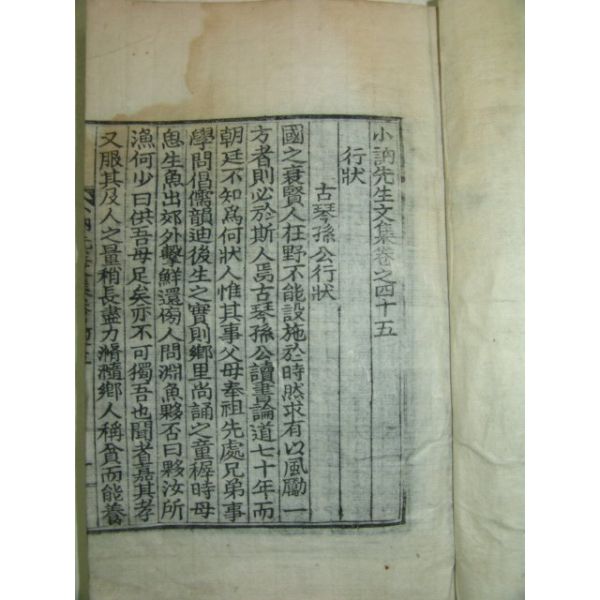 小訥先生文集卷之四十五
行狀
古琴孫公行狀
國之衰賢人在野不能設施於時然求有以風勵一
方者則必於斯人焉古琴孫公讀書論道七十年而
朝廷不知爲何狀人惟其事父母奉祖先處兄弟事
學問倡儒韻迪後生之實則鄉里尚誦之童穉時母
思生魚出郊外擊鮮還傍人問淵魚夥否曰夥汝所
漁何少曰供吾母足矣亦不可獨吾也聞者嘉其孝
又服其及人之量稍長盡力滫瀡鄉人稱貧而能養